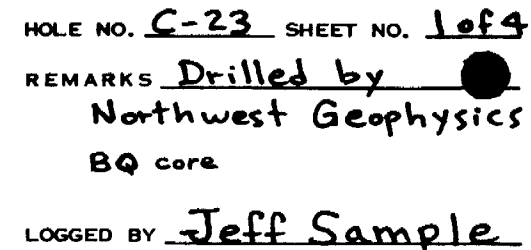 HOLE NO. C-23 SHEET NO. 1 of 4
REMARKS Drilled by
Northwest Geophysics
BQ core
LOGGED BY Jeff Sample